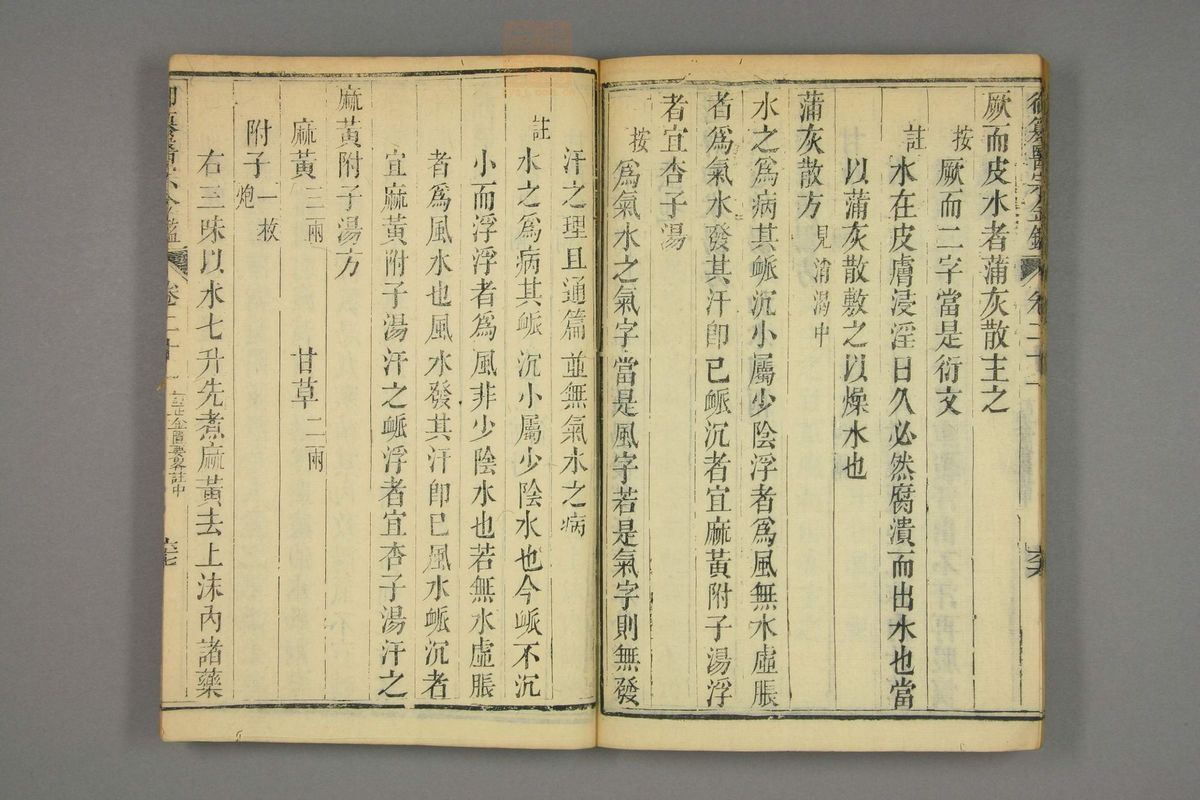 厥而皮水者蒲灰散主之
按厥而二字當是衍文
註水在皮膚浸淫日久必然腐潰而出水也當
以蒲灰散敷之以燥水也
蒲灰散方見消渴中
水之爲病其衇沉小屬少陰浮者爲風無水虛脹
者爲氣水發其汗卽已衇沉者宜麻黃附子湯浮
者宜杏子湯
按爲氣水之氣字當是風字若是氣字則無發
汗之理且通篇並無氣水之病
註水之爲病其衇沉小屬少陰水也今衇不沉
小而浮浮者爲風非少陰水也若無水虛脹
者爲風水也風水發其汗卽已風水衇沉者
宜麻黃附子湯汗之衇浮者宜杏子湯汗之
麻黃附子湯方
麻黃三兩 甘草二兩
附子一枚炮
右三味以水七升先煮麻黃去上沫內諸藥
卷二十
訂正金匱要畧註中
六七